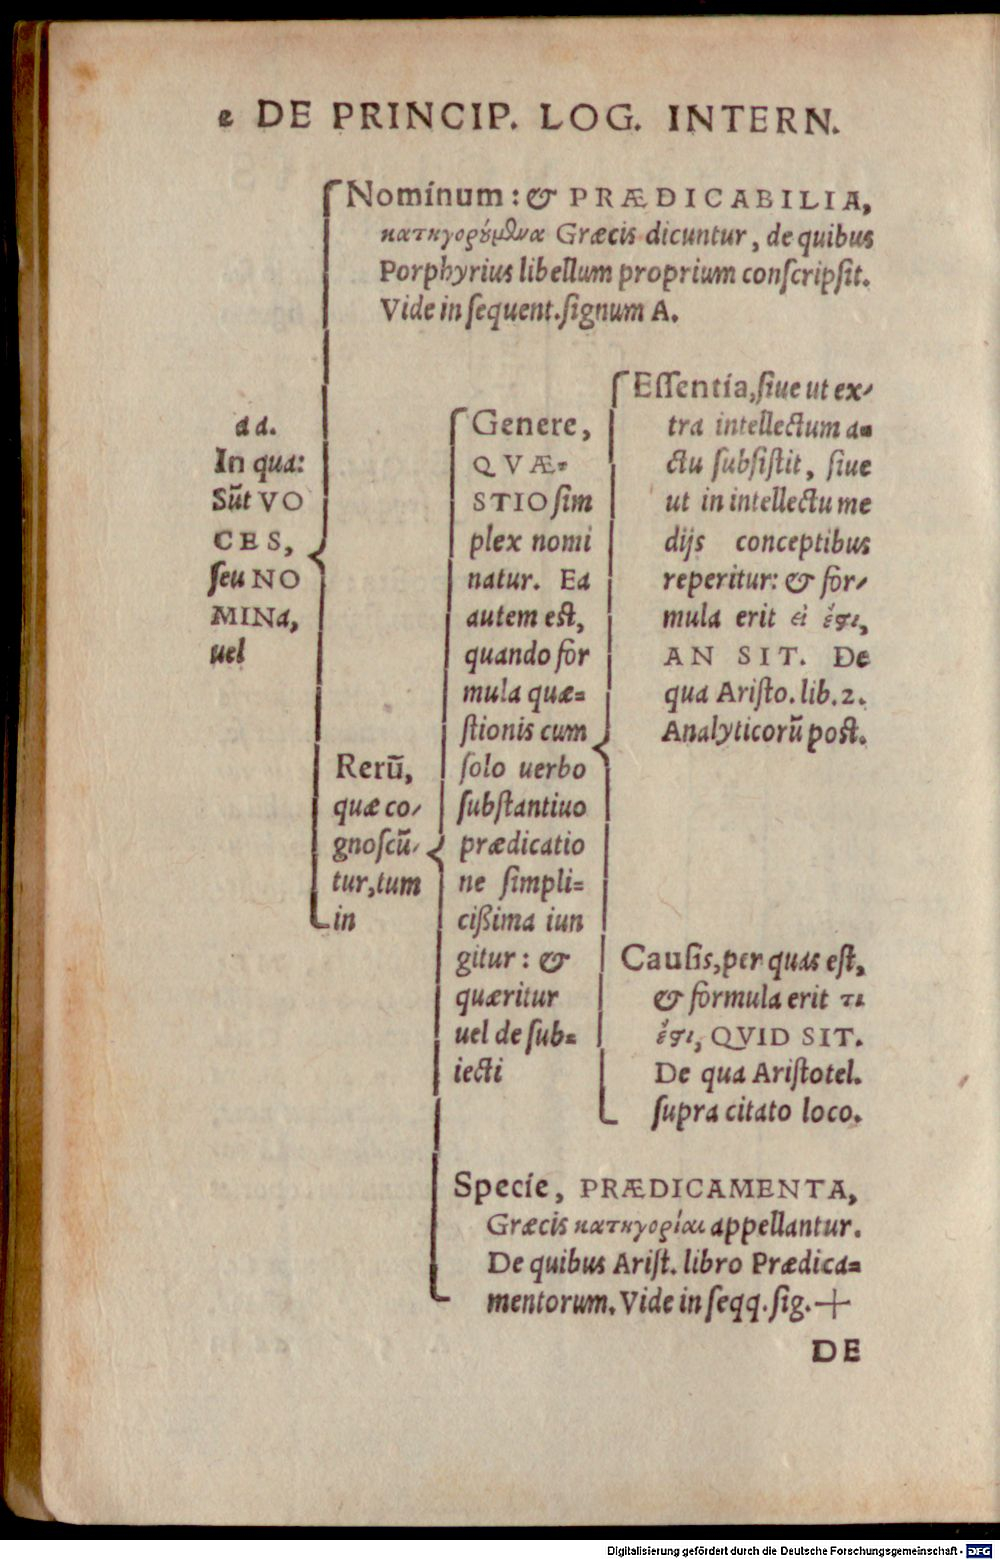 2 DE PRINCIP. LOG. INTERN.
Nominum: & PRÆDICABILIA,
κατηγορούμενα Græcis dicuntur, de quibus
Porphyrius libellum proprium conſcripſit.
Vide in ſequent. ſignum A.
ad.
In qua:
Sūt VO
CES,
ſeu NO
MINa,
uel
Rerū,
quæ co-
gnoſcū-
tur, tum
in
Genere,
QVÆ-
STIO ſim
plex nomi
natur. Ea
autem est,
quando for
mula quæ=
ſtionis cum
ſolo uerbo
ſubſtantiuo
prædicatio
ne ſimpli=
cißima iun
gitur: &
quæritur
uel de ſub=
iecti
Eſſentia, ſiue ut ex-
tra intellectum a=
ctu ſubſiſtit, ſiue
ut in intellectu me
dijs conceptibus
reperitur: & for-
mula erit εἰ ἔστι,
AN SIT. De
qua Ariſto. lib. 2.
Analyticorū poſt.
Cauſis, per quas eſt,
& formula erit τι
ἔστι, QVID SIT.
De qua Ariſtotel.
ſupra citato loco.
Specie, PRÆDICAMENTA,
Græcis κατηγορίαι appellantur.
De quibus Ariſt. libro Prædica=
mentorum. Vide in ſeqq. ſig. +
DE
Digitalisierung gefördert durch die Deutsche Forschungsgemeinschaft - DFG